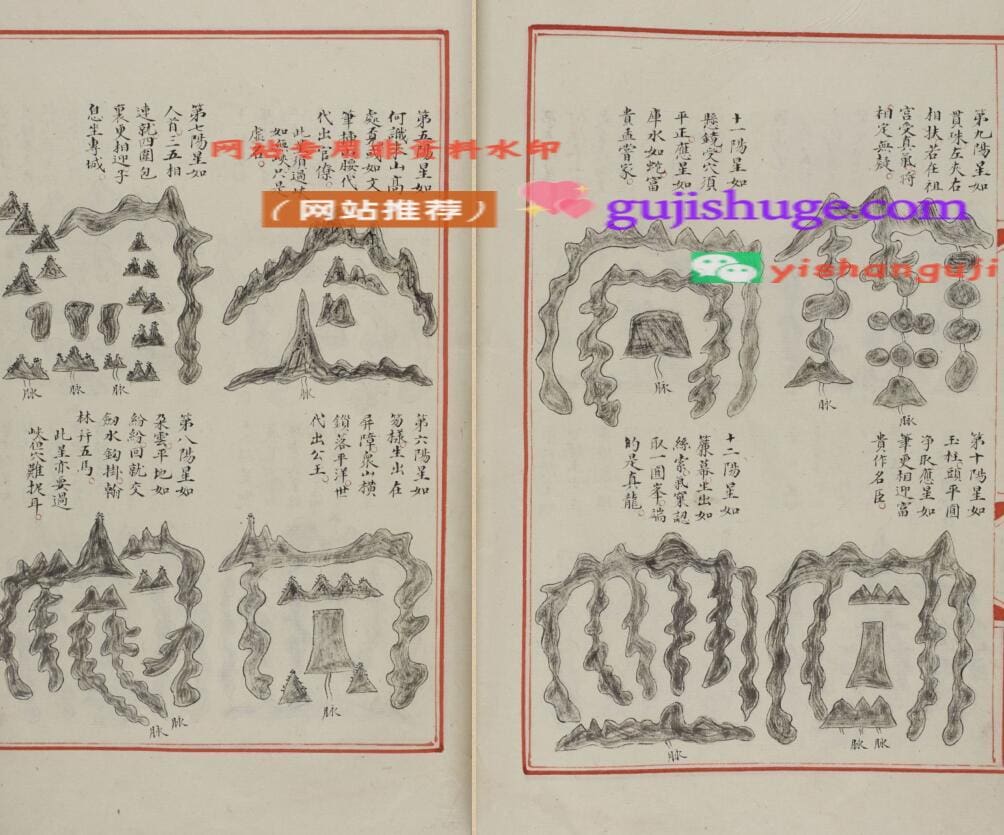 第九陽星如
貫珠左夾右
相扶若在祖
宮受真氣將
相定無疑
第十陽星如
玉柱頭平圓
淨取應星如
筆更相迎富
貴作名臣
十一陽星如
懸鏡受穴須
平正應星如
庫水如蛇富
貴孟嘗家
十二陽星如
簾幕生出如
絲索氣窠認
取一圓峯端
的是真龍
第五陽星如
何識半山高
處
如文
筆插腰代
代出官僚
此
須過
如無峽只是
虛
第六陽星如
笏樣生出在
屏障衆山橫
鎖落平洋世
代出公王
第七陽星如
人首三五相
連就四圍包
裹更相迎子
息坐專城
第八陽星如
朵雲平地如
紛紛回就交
劍水鈎掛
林
五馬
此星亦要過
峽但穴難捉耳
脉
脉
脉
脉
脉
脉
脉
脉
脉
脉
脉
脉
脉
脉
网站专用非资料水印
（网站推荐）
gujishuge.com
yishanguji